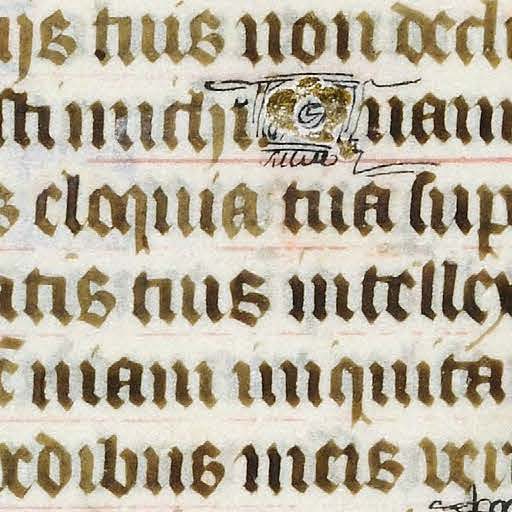 ijs tuis non decli
sti michi Quam
s eloquia tua sup
atis tuis intellex
ē uiam iniquita
edibus meis ver